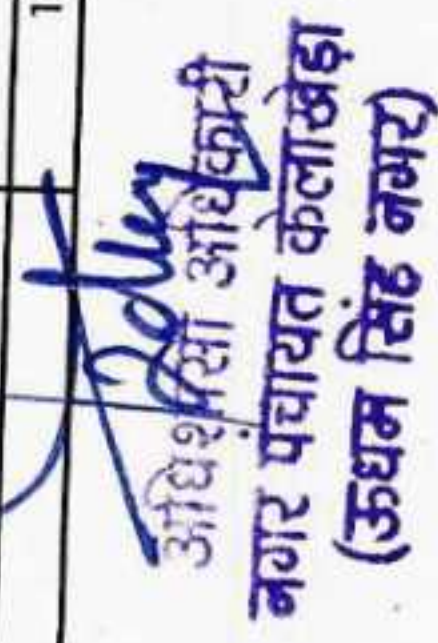 1
अधिशासी अधिकारी
नगर पंचायत केलाखेड़ा
(ऊधम सिंह नगर)